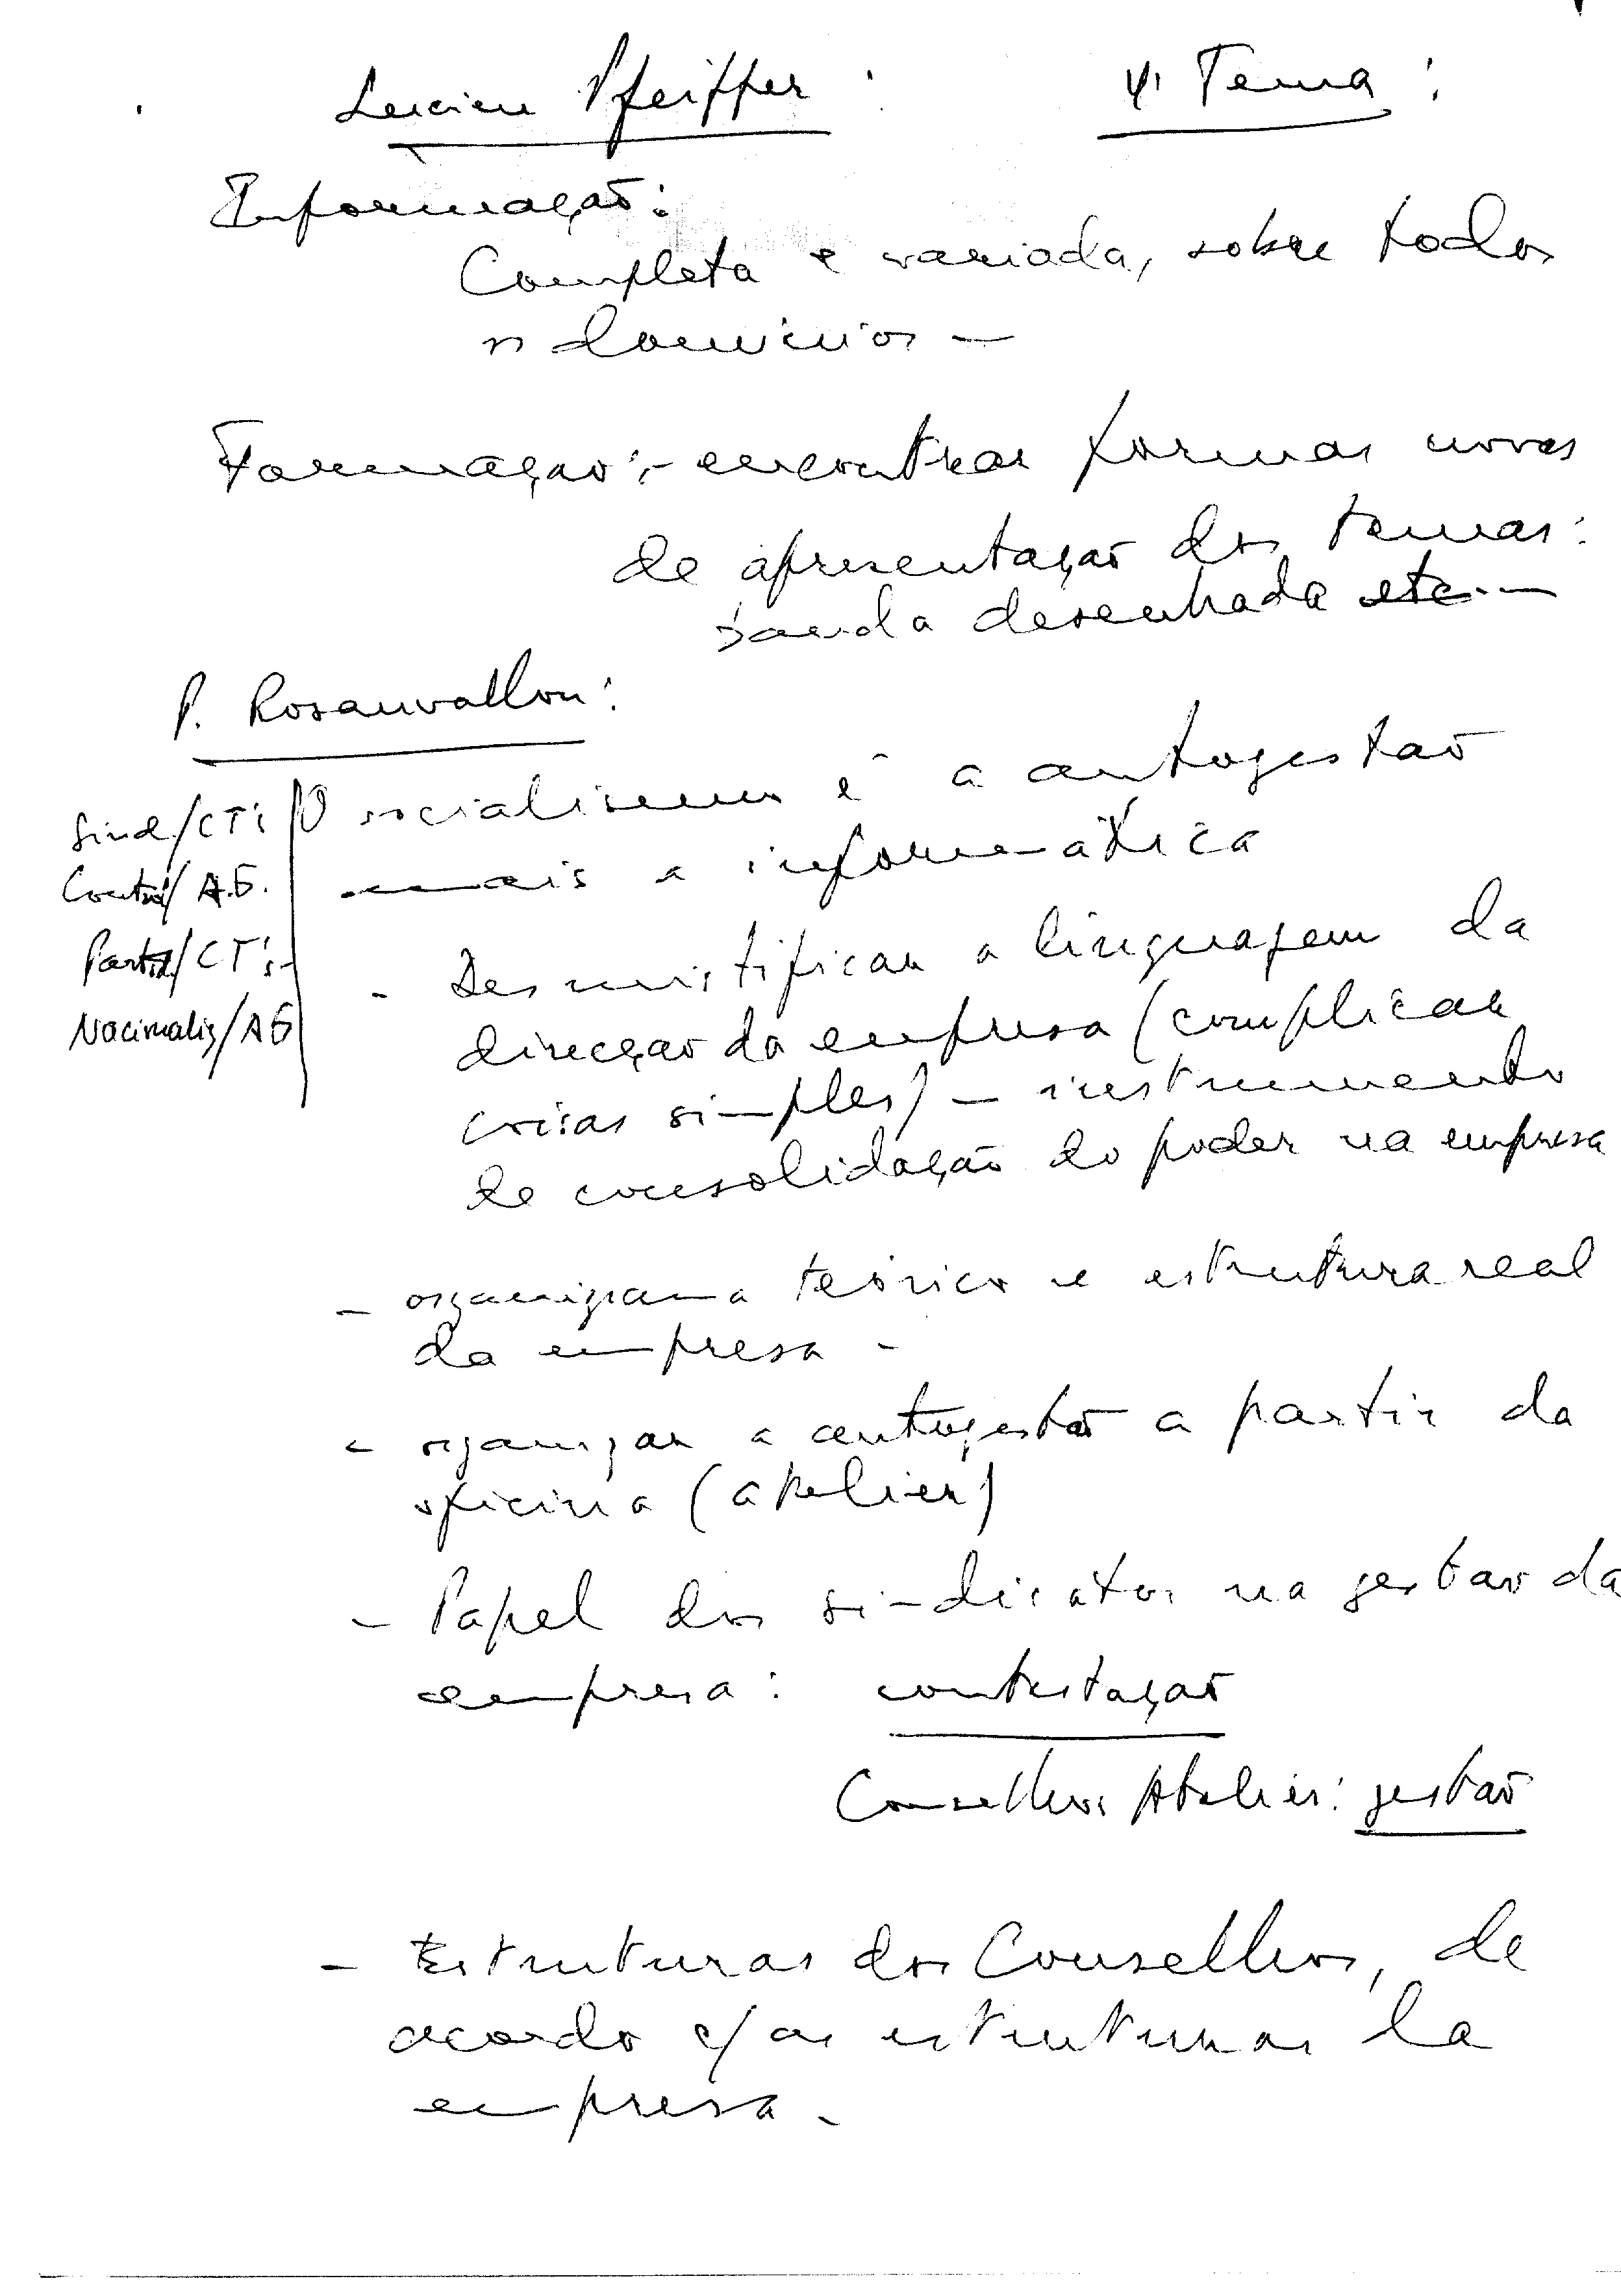 Lucien Pfeiffer : 4º Tema :
Informação:
Completa e variada, sobre todos
os domínios —
Formação:- encontrar formas novas
de apresentação dos temas:
banda desenhada etc. —
P. Rosanvallon:
O socialismo é a autogestão
mais a informática
Sind/CTs
Contrº/A.G.
Partid/CT's-
Nacionaliz/AG
- Desmistificar a linguagem da
direcção da empresa (complicar
coisas simples) — instrumento
de consolidação do poder na empresa
- organigrama teórico e estrutura real
da empresa -
- organizar a autogestão a partir da
oficina (atelier)
- Papel dos sindicatos na gestão da
empresa: contestação
Conselhos Atelier: gestão
- Estruturas dos Conselhos, de
acordo c/ as estruturas da
empresa -